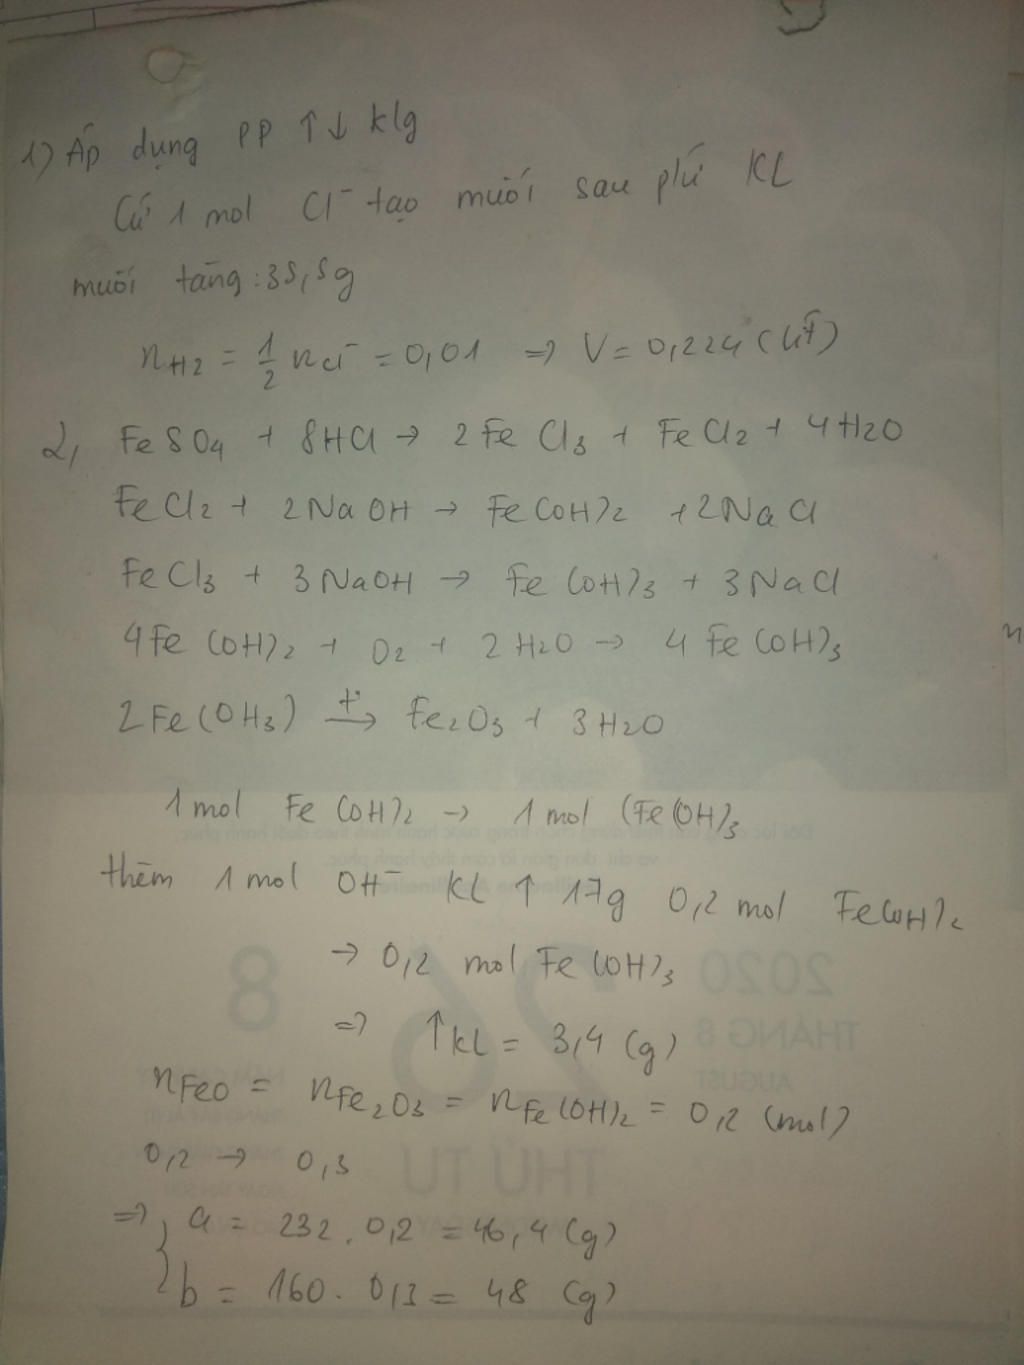 1) Áp dụng PP ↑↓ klg
Cứ 1 mol Cl⁻ tạo muối sau phứ KL
muối tăng: 35,5g
nH2 = 1/2 nCl⁻ = 0,01 => V = 0,224 (lít)
2, FeSO4 + 8HCl → 2FeCl3 + FeCl2 + 4H2O
FeCl2 + 2NaOH → Fe(OH)2 + 2NaCl
FeCl3 + 3NaOH → Fe(OH)3 + 3NaCl
4Fe(OH)2 + O2 + 2H2O → 4Fe(OH)3
2Fe(OH3) t°→ Fe2O3 + 3H2O
1 mol Fe(OH)2 → 1 mol (Fe(OH)3
thêm 1 mol OH⁻ KL ↑ 17g 0,2 mol Fe(OH)2
→ 0,2 mol Fe(OH)3
=> ↑KL = 3,4 (g)
nFeO = nFe2O3 = nFe(OH)2 = 0,2 (mol)
0,2 → 0,3
=> { a = 232 . 0,2 = 46,4 (g)
b = 160 . 0,3 = 48 (g)
8 26 2020
THÁNG 8
AUGUST
THỨ TƯ